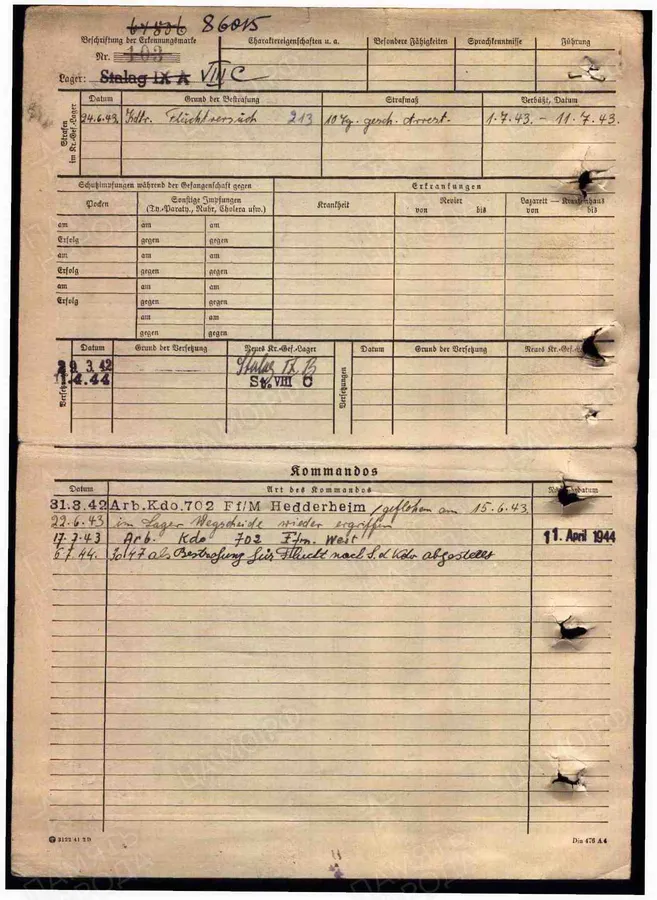 86015
Beschriftung der Erkennungsmarke
Nr. 103
Lager: Stalag IX A VIII C
Charaktereigenschaften u. a.
Besondere Fähigkeiten
Sprachkenntnisse
Führung
Strafen im Kr.-Gef.-Lager
Datum
Grund der Bestrafung
Strafmaß
Verbüßt, Datum
24.6.43. Fluchtversuch 213 10 Tg. gesch. Arrest. 1.7.43. - 11.7.43.
Schutzimpfungen während der Gefangenschaft gegen
Erkrankungen
Pocken
Sonstige Impfungen
(Ty.-Paraty., Ruhr, Cholera usw.)
Krankheit
Revier
von bis
Lazarett — Krankenhaus
von bis
am am am
Erfolg gegen gegen
am am am
Erfolg gegen gegen
am am am
Erfolg gegen gegen
am am
gegen gegen
Datum
Grund der Versetzung
Neues Kr.-Gef.-Lager
Versetzungen
Datum
Grund der Versetzung
Neues Kr.-Gef.-Lager
29 3. 42 Stalag IX B
1.4.44 St. VIII C
Kommandos
Datum
Art des Kommandos
31.3.42 Arb.Kdo.702 Ff/M Hedderheim / geflohen am 15.6.43.
22.6.43 im Lager Wegscheide wieder ergriffen
17.7.43 Arb. Kdo 702 F/m. West 11. April 1944
6.7.44. als Bestrafung für Flucht nach S.d Kdo abgestellt
3122 41 2D
Din 476 A 4